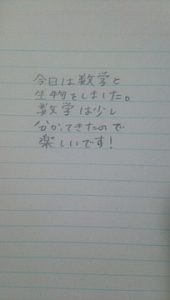 今日は数学と
生物をしました。
数学は少し
分かてきたので
楽しいです!